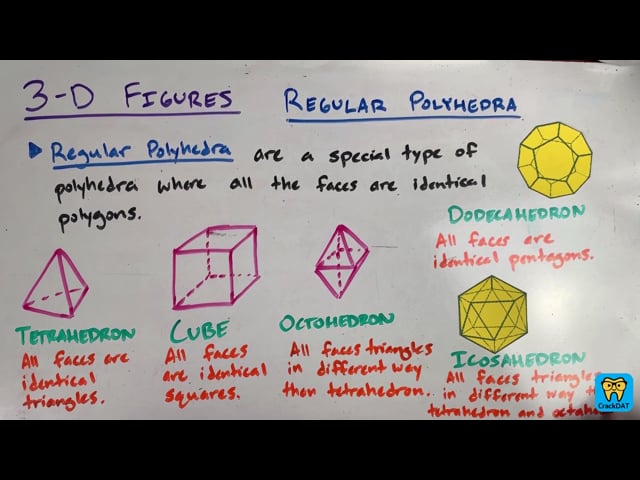 3-D FIGURES REGULAR POLYHEDRA
Regular Polyhedra are a special type of
polyhedra where all the faces are identical
polygons.
DODECAHEDRON
All faces are
identical pentagons.
TETRAHEDRON
All faces are
identical
triangles.
CUBE
All faces
are identical
squares.
OCTOHEDRON
All faces triangles
in different way
then tetrahedron.
ICOSAHEDRON
All faces triangles
in different way
tetrahedron and
CrackDAT